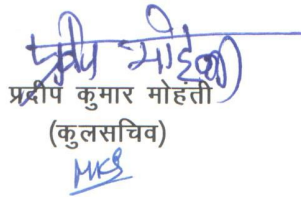 प्रदीप मोहंती
प्रदीप कुमार मोहंती
(कुलसचिव)
MKS